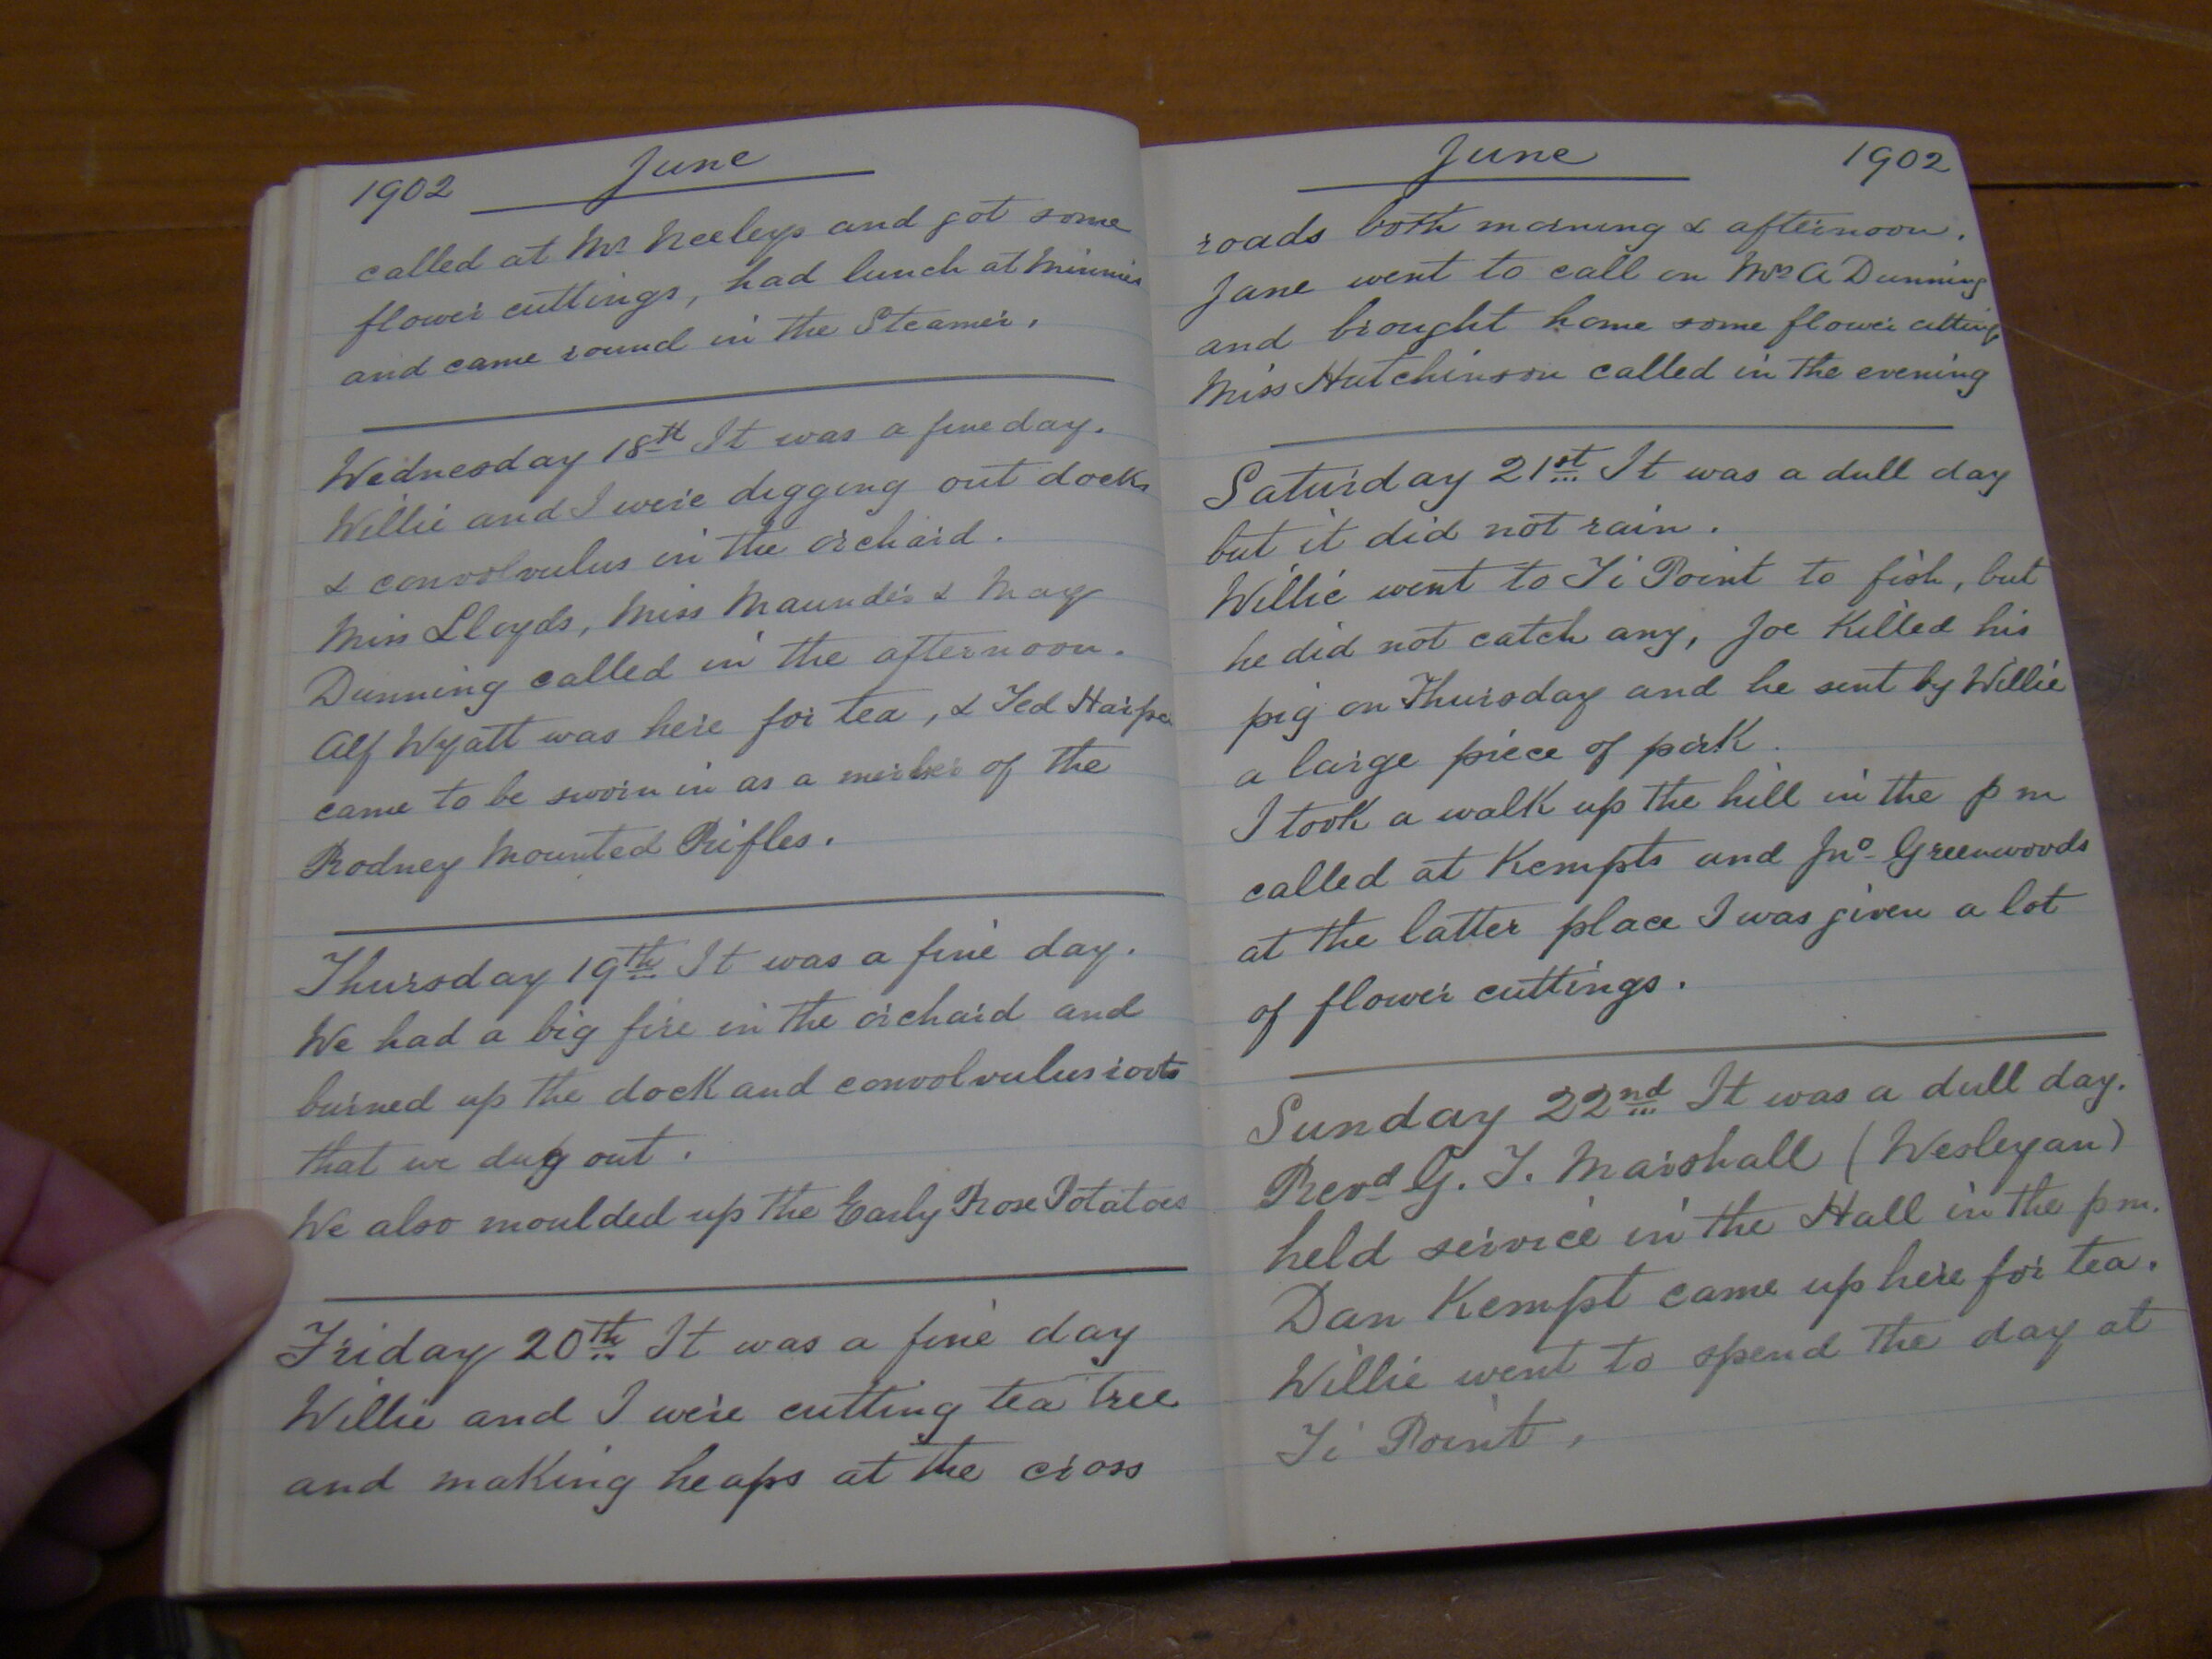 1902
June
called at Mrs Neeleys and got some
flower cuttings, had lunch at Minnies
and came round in the Steamer.
Wednesday 18th It was a fine day.
Willie and I were digging out docks
& convolvulus in the orchard.
Miss Lloyds, Miss Maunder & May
Dunning called in the afternoon.
Alf Wyatt was here for tea, & Ted Harper
came to be sworn in as a member of the
Rodney Mounted Rifles.
Thursday 19th It was a fine day.
We had a big fire in the orchard and
burned up the dock and convolvulus roots
that we dug out.
We also moulded up the Early Rose Potatoes
Friday 20th It was a fine day
Willie and I were cutting tea tree
and making heaps at the cross
June
1902
roads both morning & afternoon.
Jane went to call on Mrs A Dunning
and brought home some flower cuttings
Miss Hutchinson called in the evening
Saturday 21st It was a dull day
but it did not rain.
Willie went to Ti Point to fish, but
he did not catch any, Joe Killed his
pig on Thursday and he sent by Willie
a large piece of pork.
I took a walk up the hill in the pm
called at Kempts and Jno Greenwoods
at the latter place I was given a lot
of flower cuttings.
Sunday 22nd It was a dull day.
Revd G. T. Marshall (Wesleyan)
held service in the Hall in the pm.
Dan Kempt came up here for tea.
Willie went to spend the day at
Ti Point.